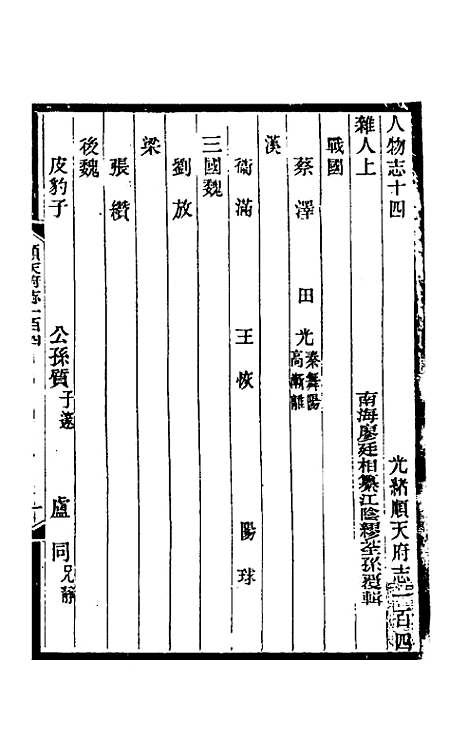 人物志十四　光緒順天府志一百四
雜人上　南海廖廷相纂江陰繆荃孫覆輯
戰國
蔡澤　田光秦舞陽高漸離
漢
衞滿　王恢　陽球
三國魏
劉放
梁
張纘
後魏
皮豹子　公孫質子邃　盧同兄靜
順天府志一百四